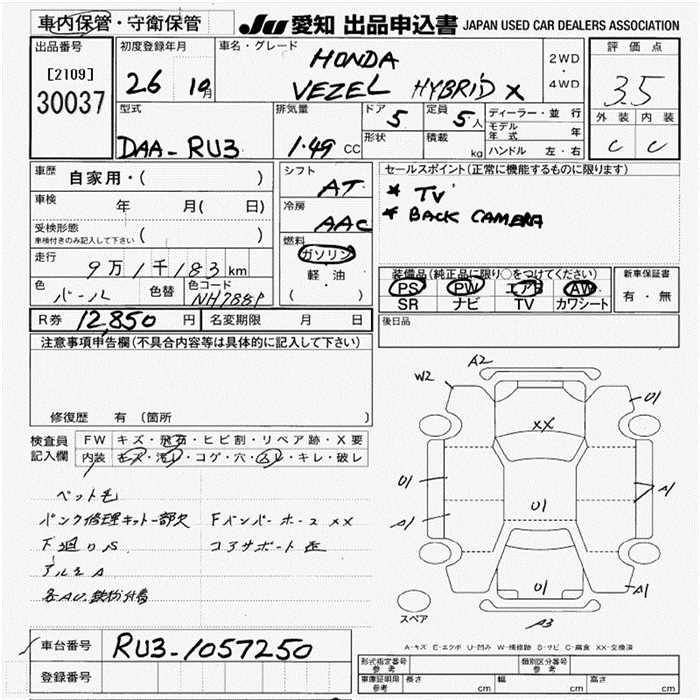 車内保管・守衛保管 JU 愛知 出品申込書 JAPAN USED CAR DEALERS ASSOCIATION
出品番号 初度登録年月 車名・グレード 評価点
[2109] 30037
26 10月
HONDA
VEZEL HYBRID X
2WD・4WD
3.5
外装 内装
C C
型式 排気量 ドア 定員
DAA-RU3 1.49 CC 5 5人
形状 積載 kg
ディーラー・並行
モデル年式 年
ハンドル 左・右
車歴 自家用・( )
シフト AT
セールスポイント(正常に機能するものに限ります)
* TV
* BACK CAMERA
車検 年 月( 日)
冷房 AAC
受検形態
車検付きのみ記入して下さい ( )
燃料 ガソリン
軽・油
( )
走行 9万1千183km
色 パール 色替 色コード NH788P
装備品(純正品に限り○をつけてください) 新車保証書
PS PW エアB AW
SR ナビ TV カワシート
有・無
R券 12,850円 名変期限 月 日
後日品
注意事項申告欄(不具合内容等は具体的に記入して下さい)
修復歴 有(箇所 )
検査員記入欄
FW キズ・飛石・ヒビ割・リペア跡・X要
内装 キズ・汚レ・コゲ・穴・スレ・キレ・破レ
ペット毛
パンク修理キット一部欠 Fバンパーホース XX
下廻りS コアサポート
アルミA
鉄粉付着
A2
W2
U1
XX
U1
A1
U1
A1
U1
A1
A3
スペア
A-キズ E-エクボ U-凹み W-補修跡 S-サビ C-腐食 XX-交換済
車台番号 RU3-1057250
登録番号
形式指定番号 参考 類別区分番号 参考
車庫証明用 参考 長さ cm 幅 cm 高さ cm